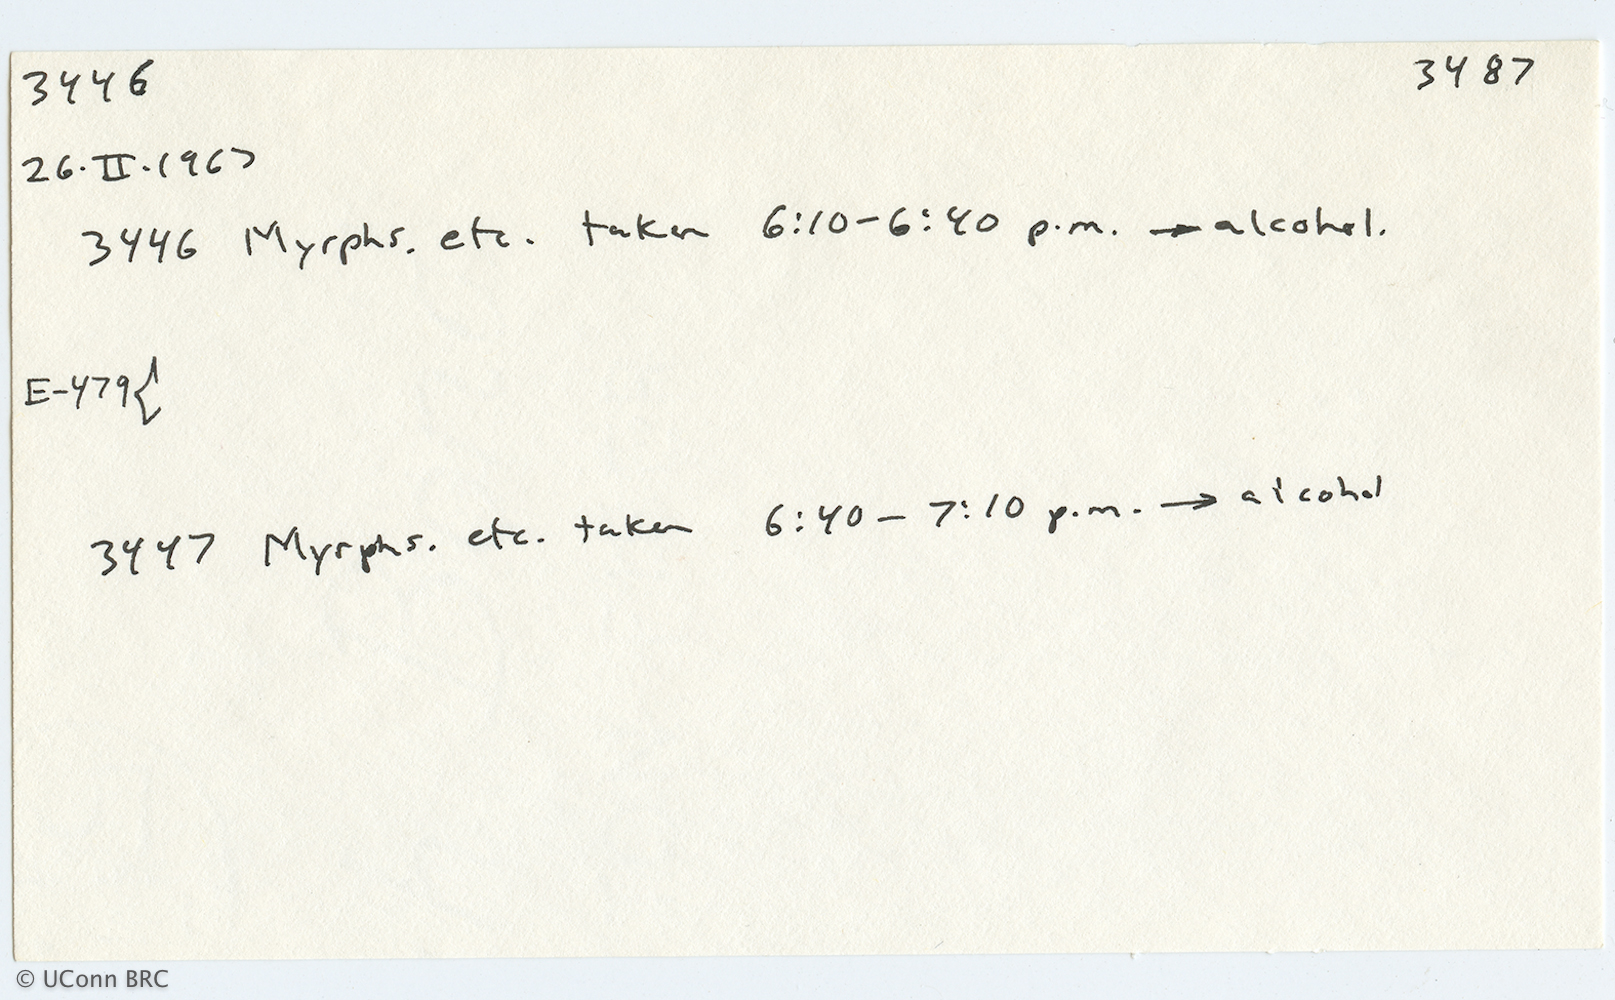 3446 3487
26.II.1967
3446 Myrphs. etc. taken 6:10-6:40 p.m. → alcohol.
E-479{
3447 Myrphs. etc. taken 6:40 – 7:10 p.m. → alcohol
© UConn BRC